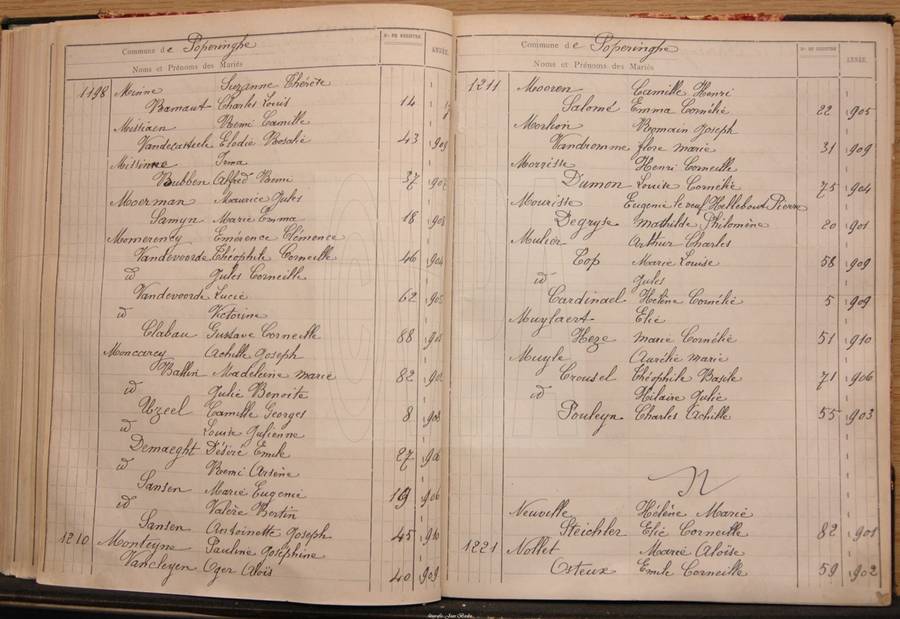 Commune de Poperinghe
Nos DE REGISTRE
ANNÉE
Noms et Prénoms des Mariés
1198 Suzanne Thérèse
Bamaut Charles Louis 14
Missiaen Remi Camille
Vandecasteele Elodie Rosalie 43 909
Missinne Irma
Bubben Alfred Remi 37 902
Moerman Maurice Jules
Samyn Marie Emma 18 908
Momerency Emérence Clémence
Vandevoorde Théophile Corneille 46 904
id Jules Corneille
Vandevoorde Lucie 62 905
id Victorine
Clabau Gustave Corneille 88 901
Moncarey Achille Joseph
Ballin Madeleine Marie 82
id Julie Benoite
Uzeel Camille Georges 8 908
id Louise Julienne
Demaeght Désiré Emile 27 906
id Remi Arsène
Sansen Marie Eugenie 19 906
id Valère Bertin
Sansen Antoinette Joseph 45 910
1210 Monteyne Pauline Joséphine
Vancleyen Oger Aloïs 40 909
Commune de Poperinghe
Nos DE REGISTRE
ANNÉE
Noms et Prénoms des Mariés
1211 Mooren Camille Henri
Salomé Emma Cornélie 22 905
Morlion Romain Joseph
Vandromme flore marie 31 909
Morisse Henri Corneille
Dumon Louise Cornélie 75 904
Mourisse Eugenie veuf Hellebout Pierre
Degryse Mathilde Philomène 20 901
Mulier Arthur Charles
Cop Marie Louise 58 909
id Jules
Cardinael Helène Cornélie 5 909
Muylaert Elie
Heze marie Cornélie 51 910
Muyle Aurélie marie
Crousel Théophile Basile 71 906
id Hilaire Julie
Pouleyn Charles Achille 55 903
N
Neuville Hélène Marie
Steichler Elie Corneille 82 901
1221 Nollet Marie Aloise
Osteux Emile Corneille 59 902